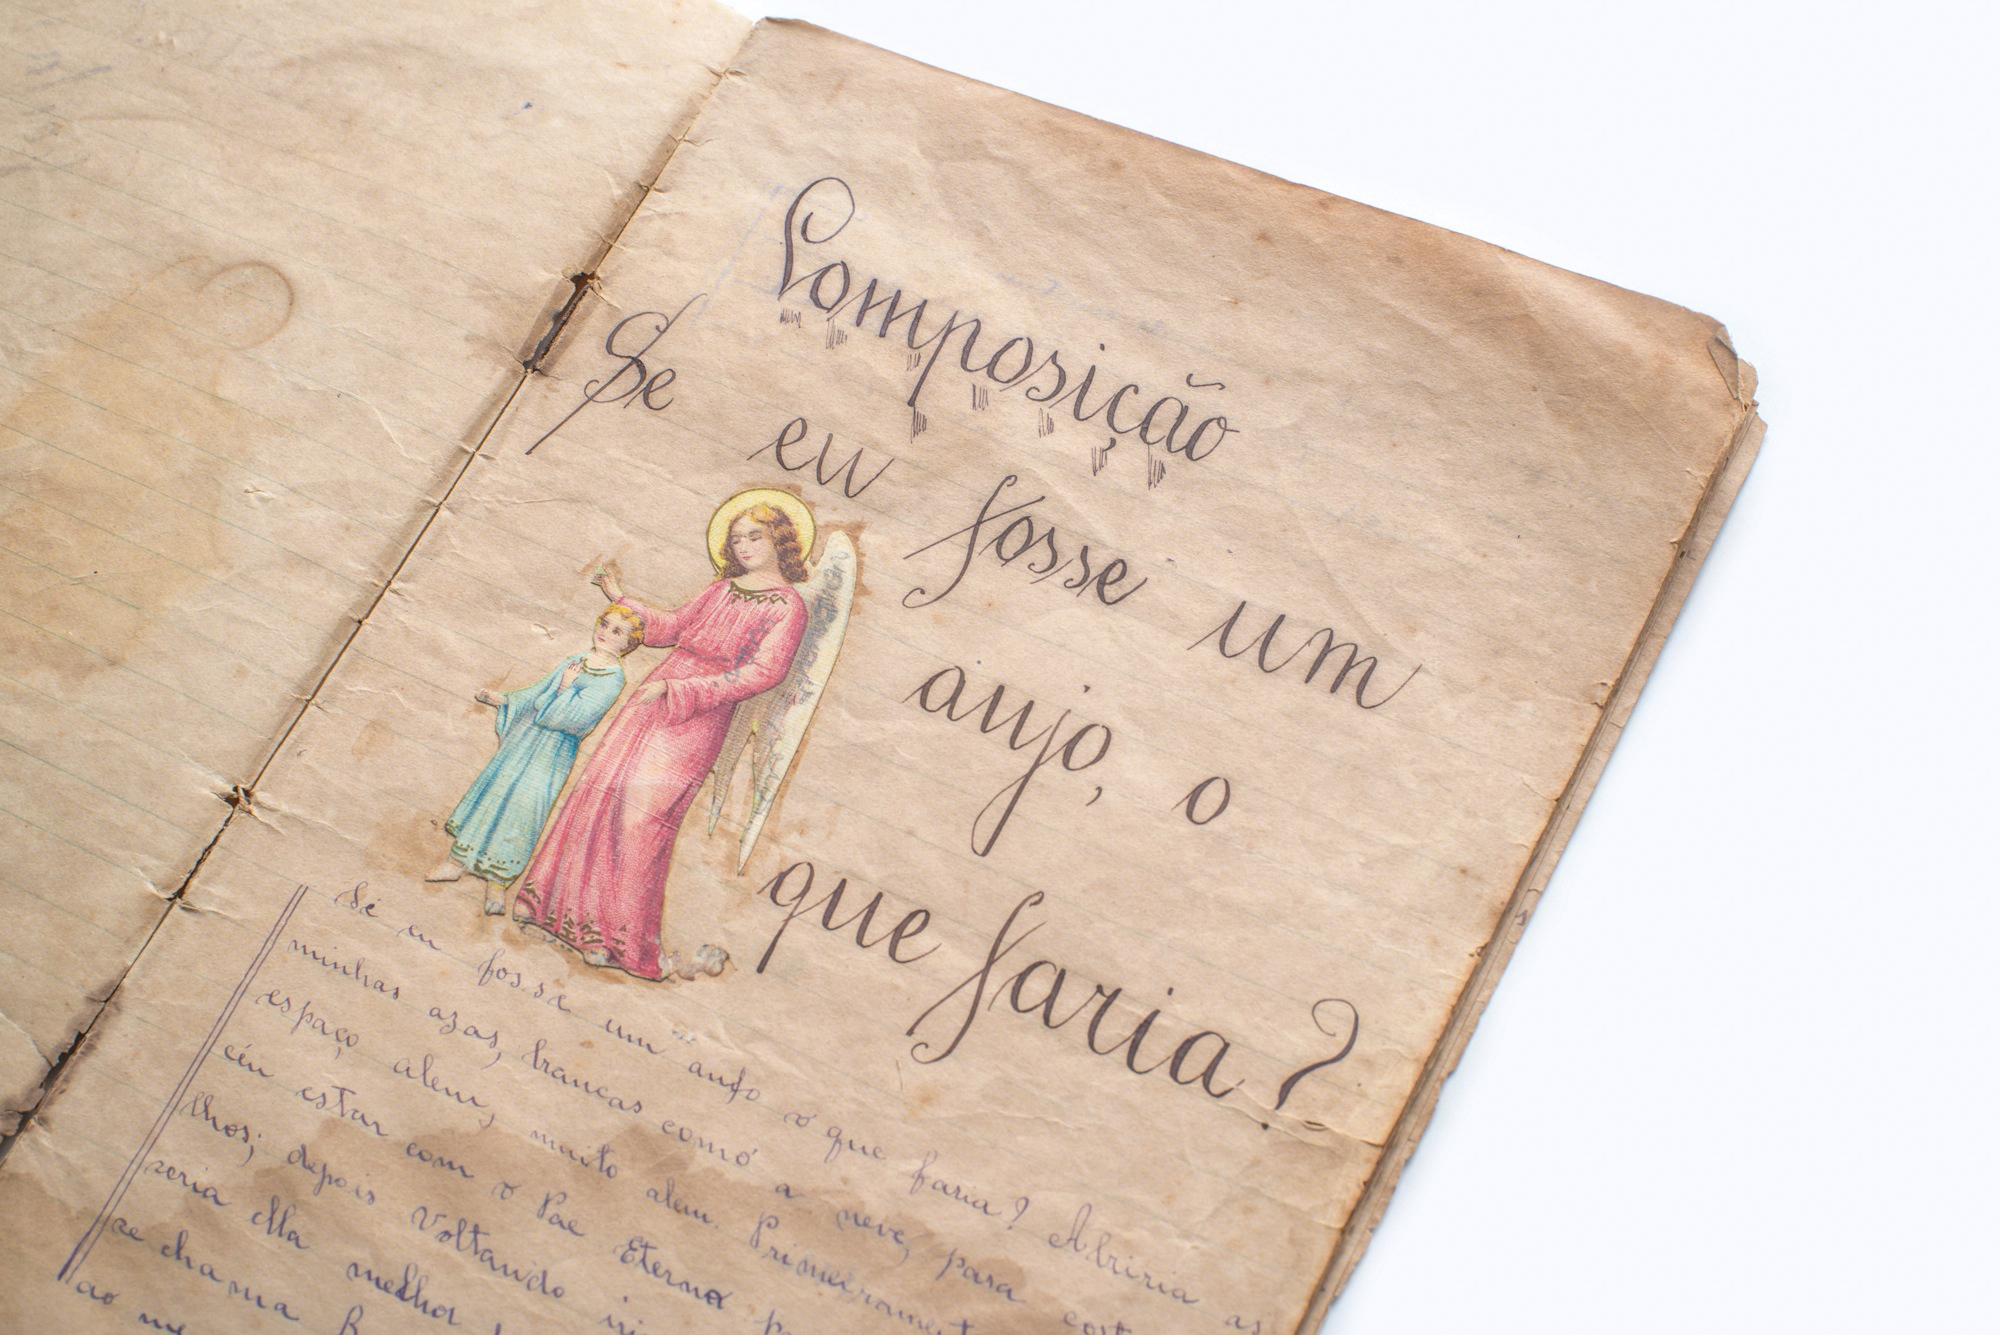 Composição
Se eu fosse um
anjo, o
que faria?
Se eu fosse um anjo o que faria? Abriria as
minhas azas, brancas como a neve, para
espaço alem, muito alem. Primeirament
céu estar com o Pae Eterno
lhos; depois Voltando
seria ella melhor
se chama
ao